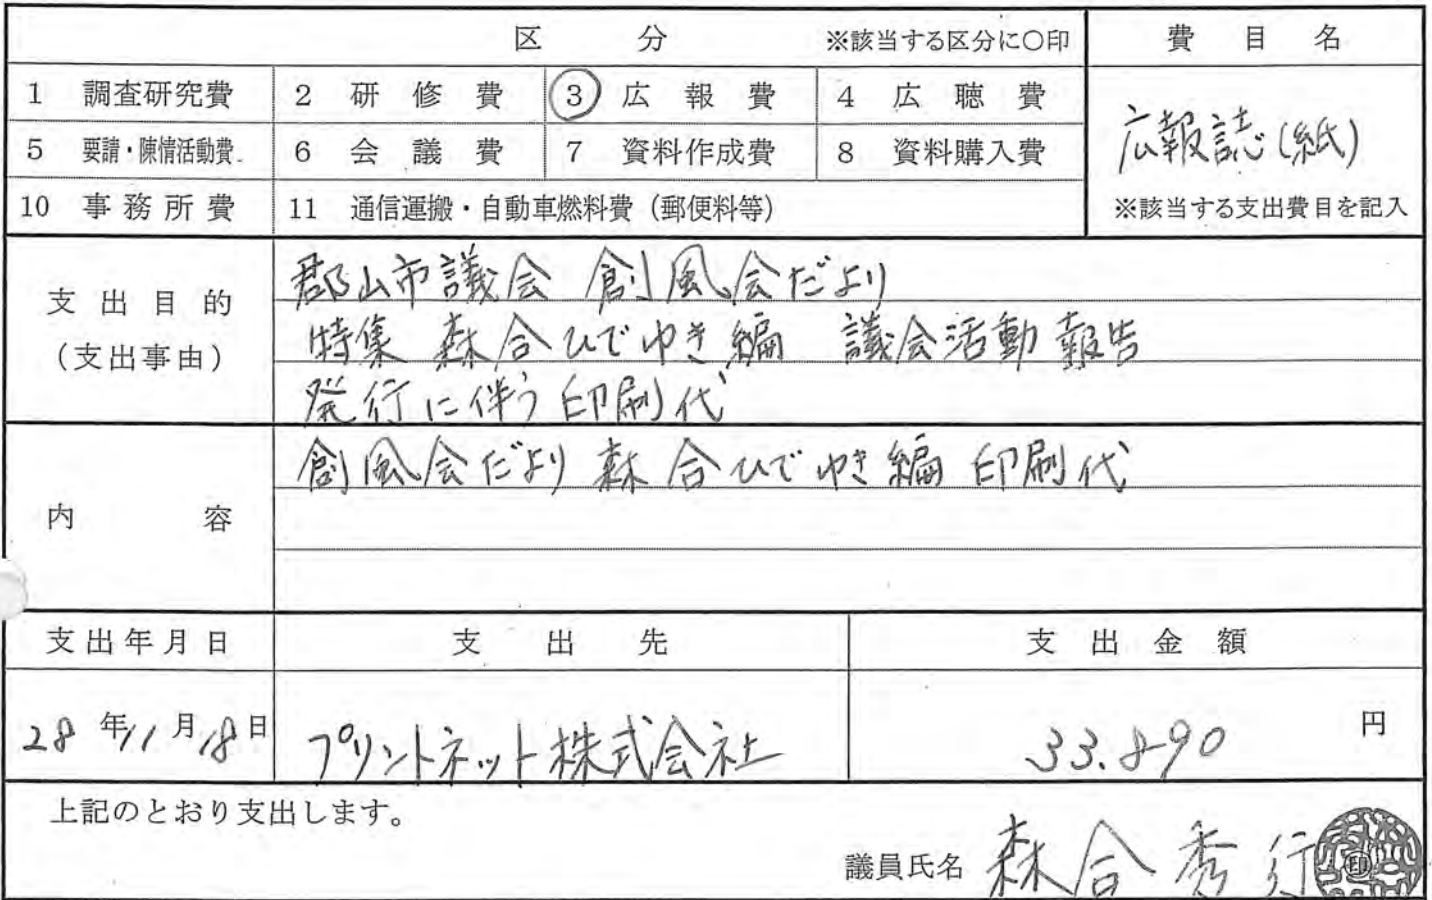 区 分 ※該当する区分に○印 費 目 名
1 調査研究費 2 研 修 費 3 広 報 費 4 広 聴 費
広報誌(紙)
5 要請・陳情活動費 6 会 議 費 7 資料作成費 8 資料購入費
10 事務所費 11 通信運搬・自動車燃料費(郵便料等) ※該当する支出費目を記入
支出目的
(支出事由)
郡山市議会 創風会だより
特集 森合ひでゆき編 議会活動報告
発行に伴う印刷代
内 容
創風会だより 森合ひでゆき編 印刷代
支出年月日 支 出 先 支 出 金 額
28年11月18日 プリントネット株式会社 33.890円
上記のとおり支出します。
議員氏名 森合秀行 印